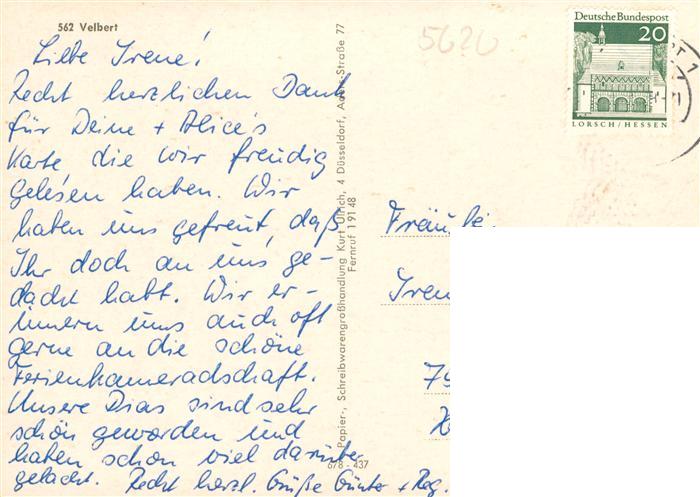 562 Velbert
Liebe Irene!
Recht herzlichen Dank
für Deine + Alice's
Karte, die wir freudig
gelesen haben. Wir
haben uns gefreut, daß
Ihr doch an uns ge-
dacht habt. Wir er-
innern uns auch oft
gerne an die schöne
Ferienkameradschaft.
Unsere Dias sind sehr
schön geworden und
haben schon viel darüber
gelacht. Recht herzl. Grüße Günter + Reg.
Papier-, Schreibwarengroßhandlung Kurt Ullrich, 4 Düsseldorf, Straße 77
Fernruf 1 91 48
678 - 437
5620
Deutsche Bundespost
20
LORSCH / HESSEN
Fräulei
Iren
79